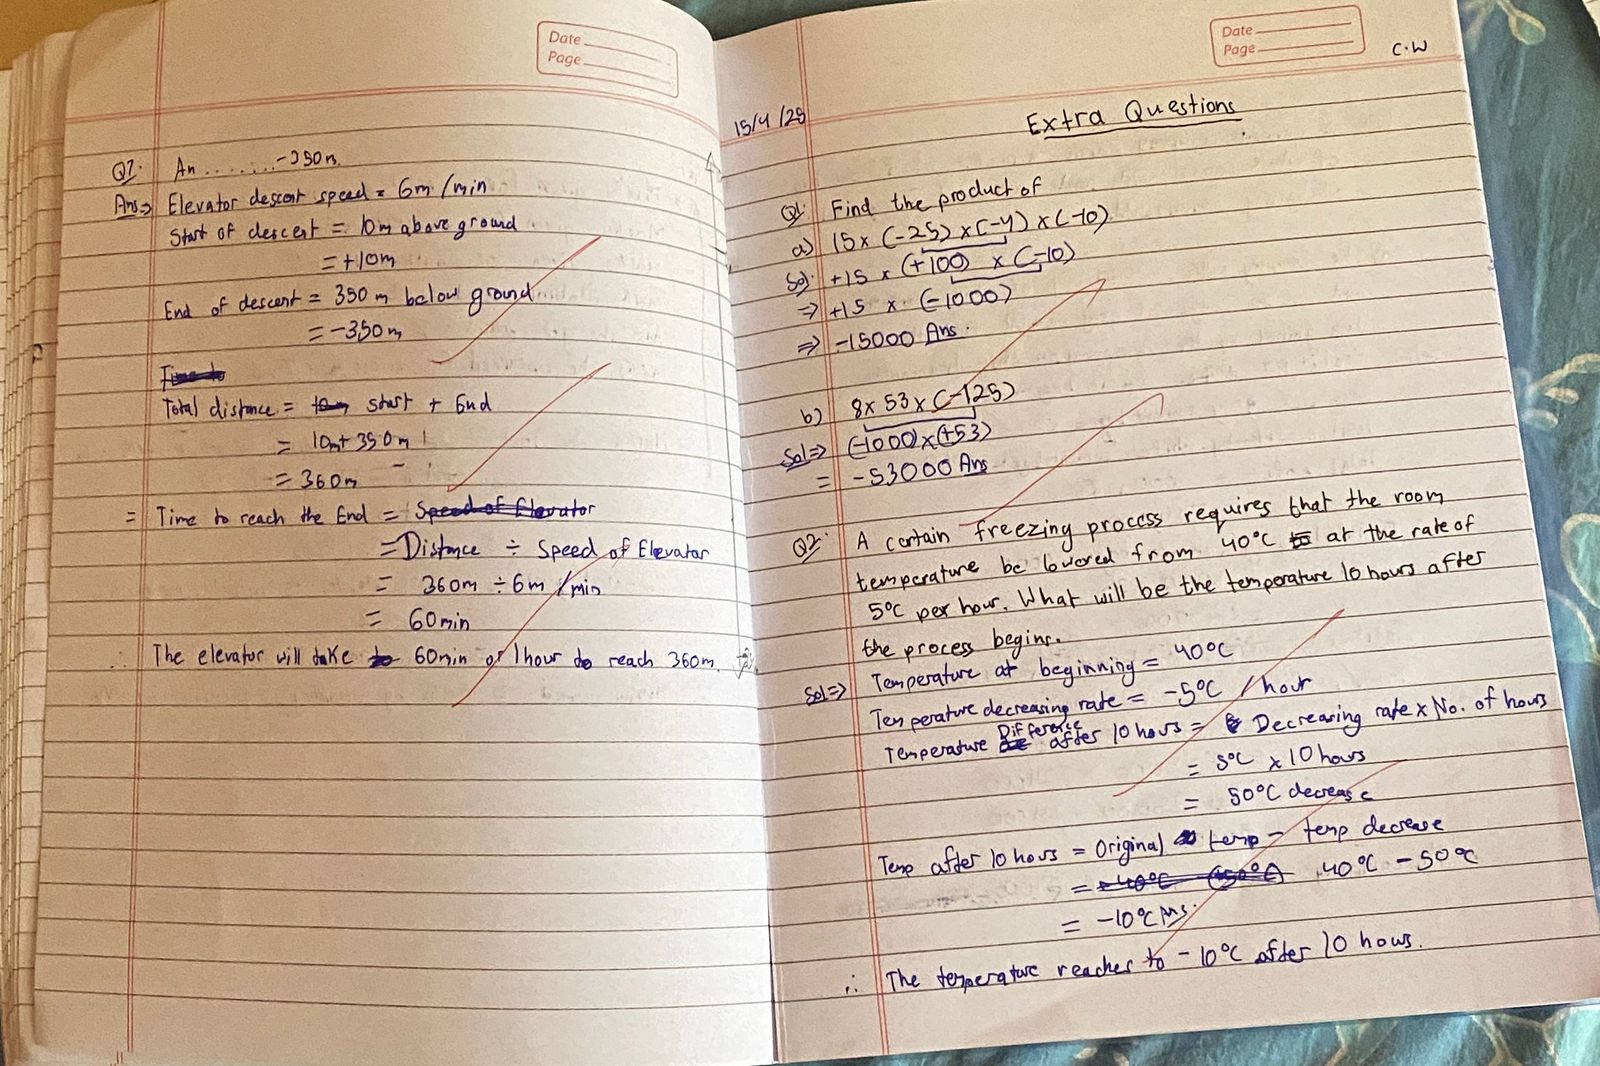 Date
Page
Q7. An ........ -350m.
Ans⇒ Elevator descent speed = 6m/min
Start of descent = 10m above ground
= +10m
End of descent = 350 m below ground
= -350m
Total distance = start + End
= 10m + 350m
= 360m
= Time to reach the End = Speed of Elevator
= Distance ÷ Speed of Elevator
= 360m ÷ 6m/min
= 60min
The elevator will take 60min or 1hour to reach 360m.
Date
Page
C.W
15/4/25
Extra Questions
Q1. Find the product of
a) 15 x (-25) x (-4) x (-10)
Sol. +15 x (+100) x (-10)
⇒ +15 x (-1000)
⇒ -15000 Ans.
b) 8 x 53 x (-125)
Sol⇒ (-1000) x (+53)
= -53000 Ans
Q2. A certain freezing process requires that the room
temperature be lowered from 40°C at the rate of
5°C per hour. What will be the temperature 10 hours after
the process begins.
Sol⇒ Temperature at beginning = 40°C
Temperature decreasing rate = -5°C / hour
Temperature Difference after 10 hours = Decreasing rate x No. of hours
= 5°C x 10 hours
= 50°C decrease
Temp after 10 hours = Original temp - temp decrease
= 40°C - 50°C
= -10°C Ans.
∴ The temperature reaches to -10°C after 10 hours.